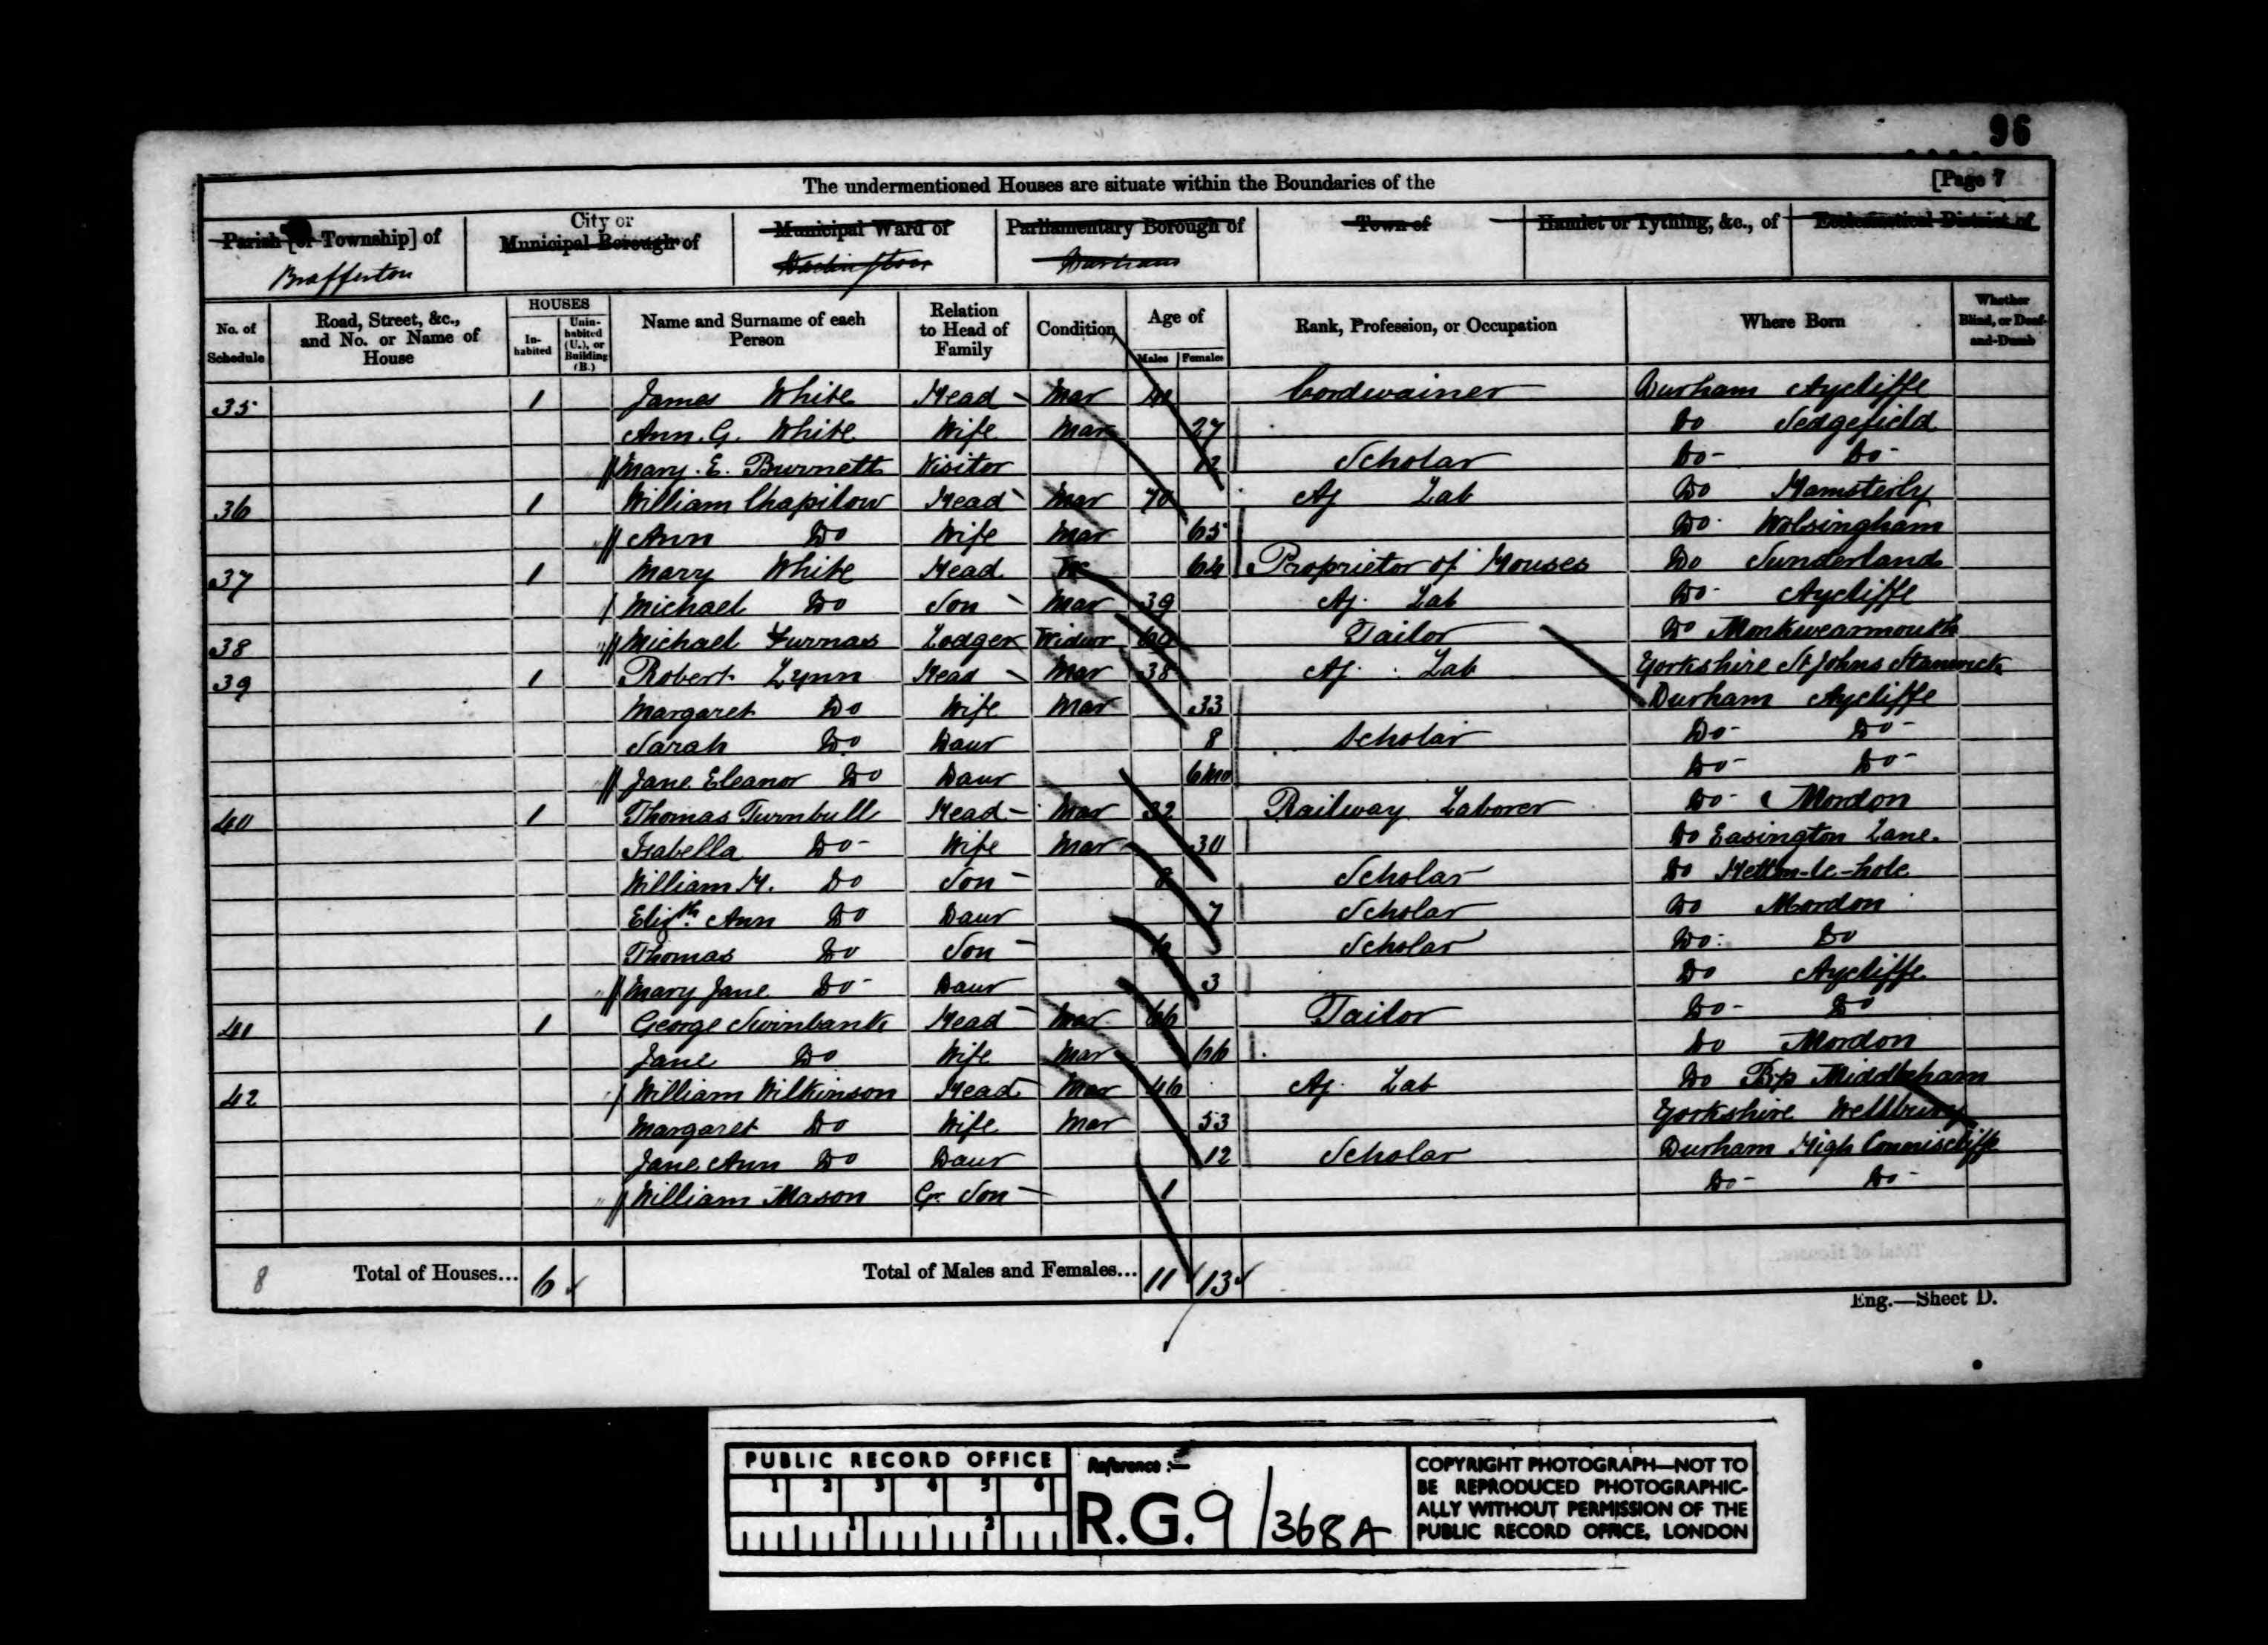 96
The undermentioned Houses are situate within the Boundaries of the [Page 7
Parish [or Township] of City or Municipal Borough of Municipal Ward of Parliamentary Borough of Town of Hamlet or Tything, &c., of Ecclesiastical District of
Brafferton Darlington Durham
No. of Schedule Road, Street, &c., and No. or Name of House HOUSES In-habited Unin-habited (U.), or Building (B.) Name and Surname of each Person Relation to Head of Family Condition Age of Males Females Rank, Profession, or Occupation Where Born Whether Blind, or Deaf-and-Dumb
35 1 James White Head Mar Cordwainer Durham Aycliffe
Ann. G. White Wife Mar 27 Do Sedgefield
Mary. E. Burnett Visitor 12 Scholar Do - Do -
36 1 William Chapilow Head Mar 70 Ag Lab Do Hamsterly
Ann Do Wife Mar 65 Do Wolsingham
37 1 Mary White Head 64 Proprietor of Houses Do Sunderland
Michael Do Son Mar 39 Ag. Lab Do Aycliffe
38 Michael Furnas Lodger Widwr 60 Tailor Do Monkwearmouth
39 1 Robert Lynn Head Mar 38 Ag. Lab Yorkshire St Johns Stanwick
Margaret Do Wife Mar 33 Durham Aycliffe
Sarah Do Daur 8 Scholar Do - Do -
Jane Eleanor Do Daur 6 Mo Do - Do -
40 1 Thomas Turnbull Head Mar 32 Railway Laborer Do - Mordon
Isabella Do - Wife Mar 30 Do Easington Lane.
William H. Do Son 8 Scholar Do Hetton-le-hole
Elizth. Ann Do Daur 7 Scholar Do Mordon
Thomas Do Son Scholar Do Do
Mary Jane Do - Daur 3 Do Aycliffe
41 1 George Swinbank Head Mar 66 Tailor Do - Do
Jane Do Wife Mar 66 Do Mordon
42 William Wilkinson Head Mar 46 Ag. Lab Do Bp Middleham
Margaret Do Wife Mar 53 Yorkshire Wellbury
Jane Ann Do Daur 12 Scholar Durham High Conniscliffe
William Mason Gr. Son 1 Do - Do -
8 Total of Houses... 6 Total of Males and Females... 11 13
Eng.—Sheet D.
PUBLIC RECORD OFFICE
1 2 3 4 5 6
1 2
Reference :-
R.G. 9 / 368A
COPYRIGHT PHOTOGRAPH—NOT TO
BE REPRODUCED PHOTOGRAPHIC-
ALLY WITHOUT PERMISSION OF THE
PUBLIC RECORD OFFICE, LONDON